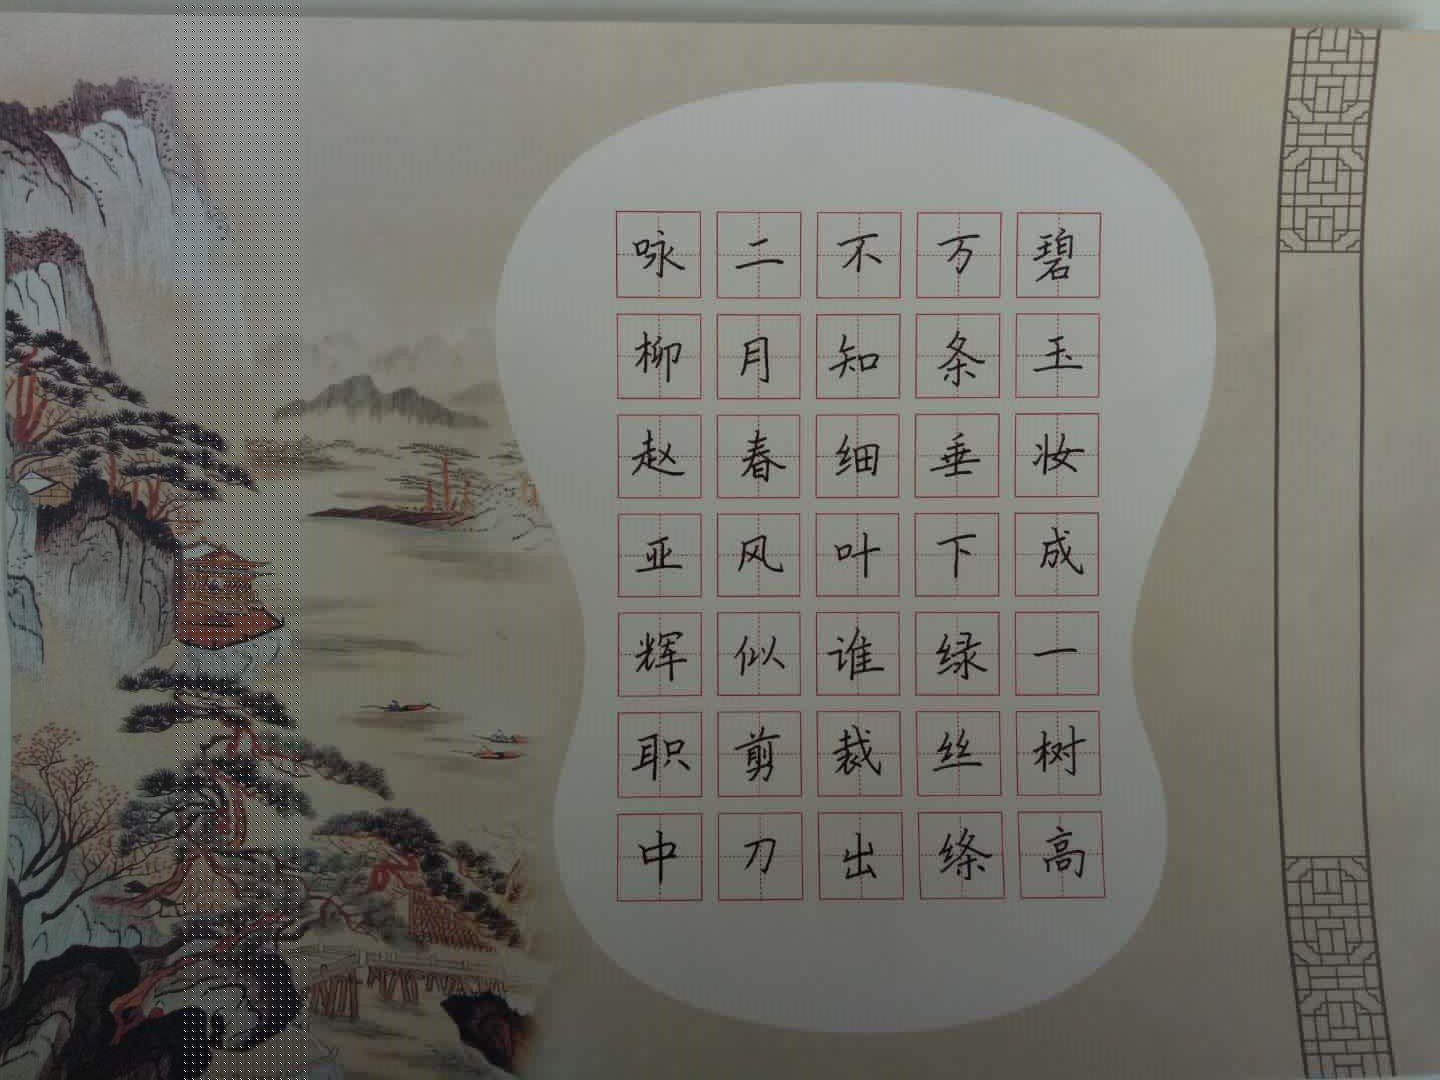 碧玉妆成一树高
万条垂下绿丝绦
不知细叶谁裁出
二月春风似剪刀
咏柳赵亚辉职中